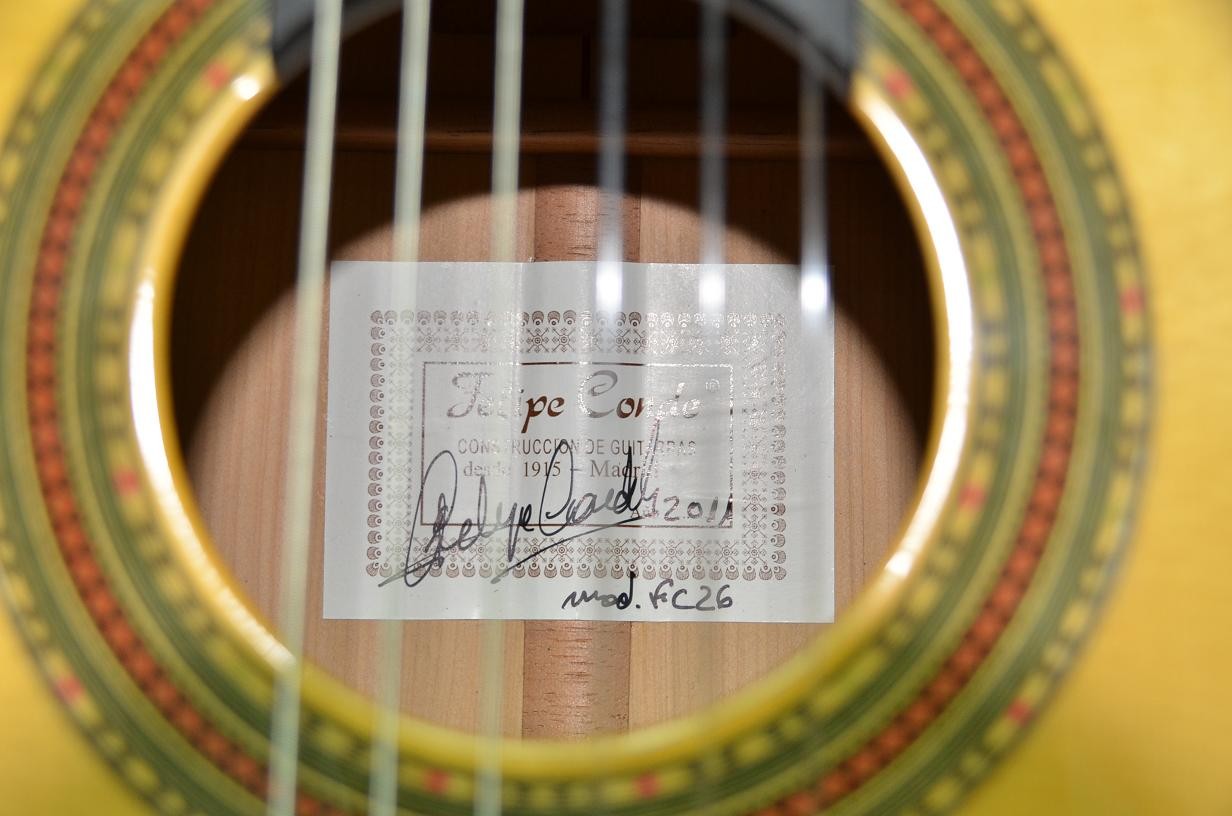 Felipe Conde ®
CONSTRUCCION DE GUITARRAS
desde 1915 - Madrid
Felipe Conde
Año 2011
mod. FC26